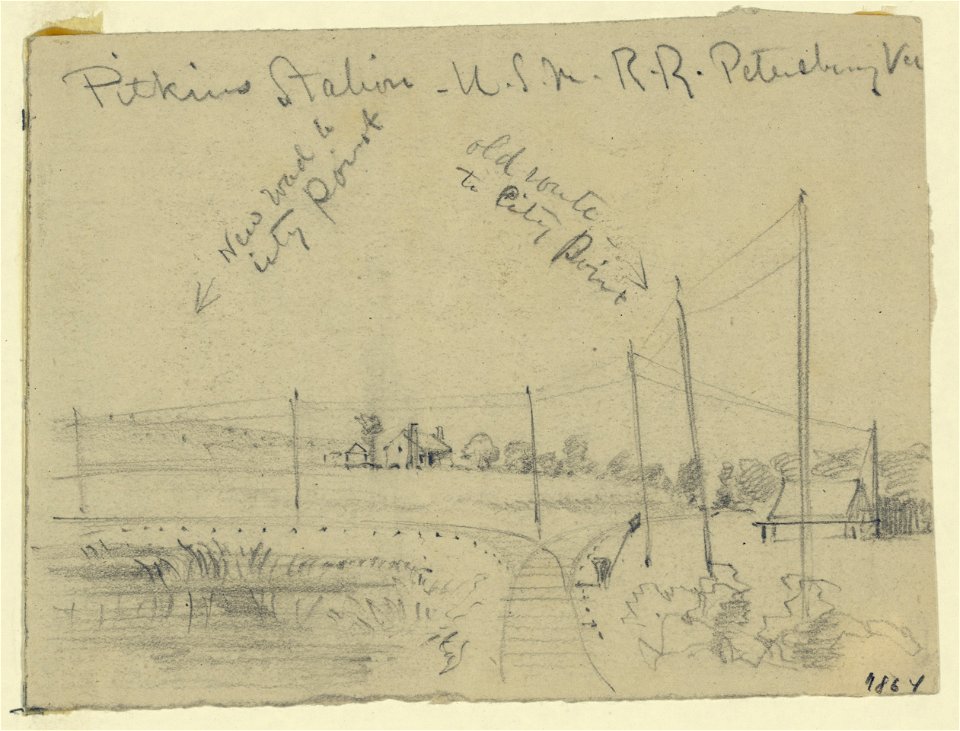 Pitkins Station - U.S.M. R.R. Petersburg Va
New road to
city Point
old route
to City Point
1864